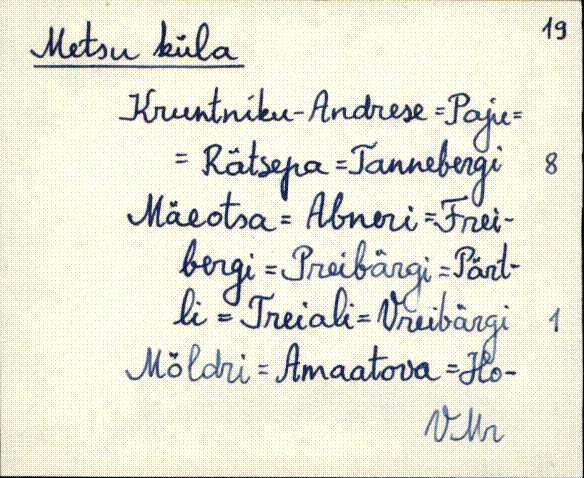 19
Metsu küla
Kruntniku-Andrese = Paju =
= Rätsepa = Tannebergi 8
Mäeotsa = Abneri = Frei-
bergi = Preibärgi = Pärt-
li = Treiali = Vreibärgi 1
Möldri = Amaatova = Ho-
VMr